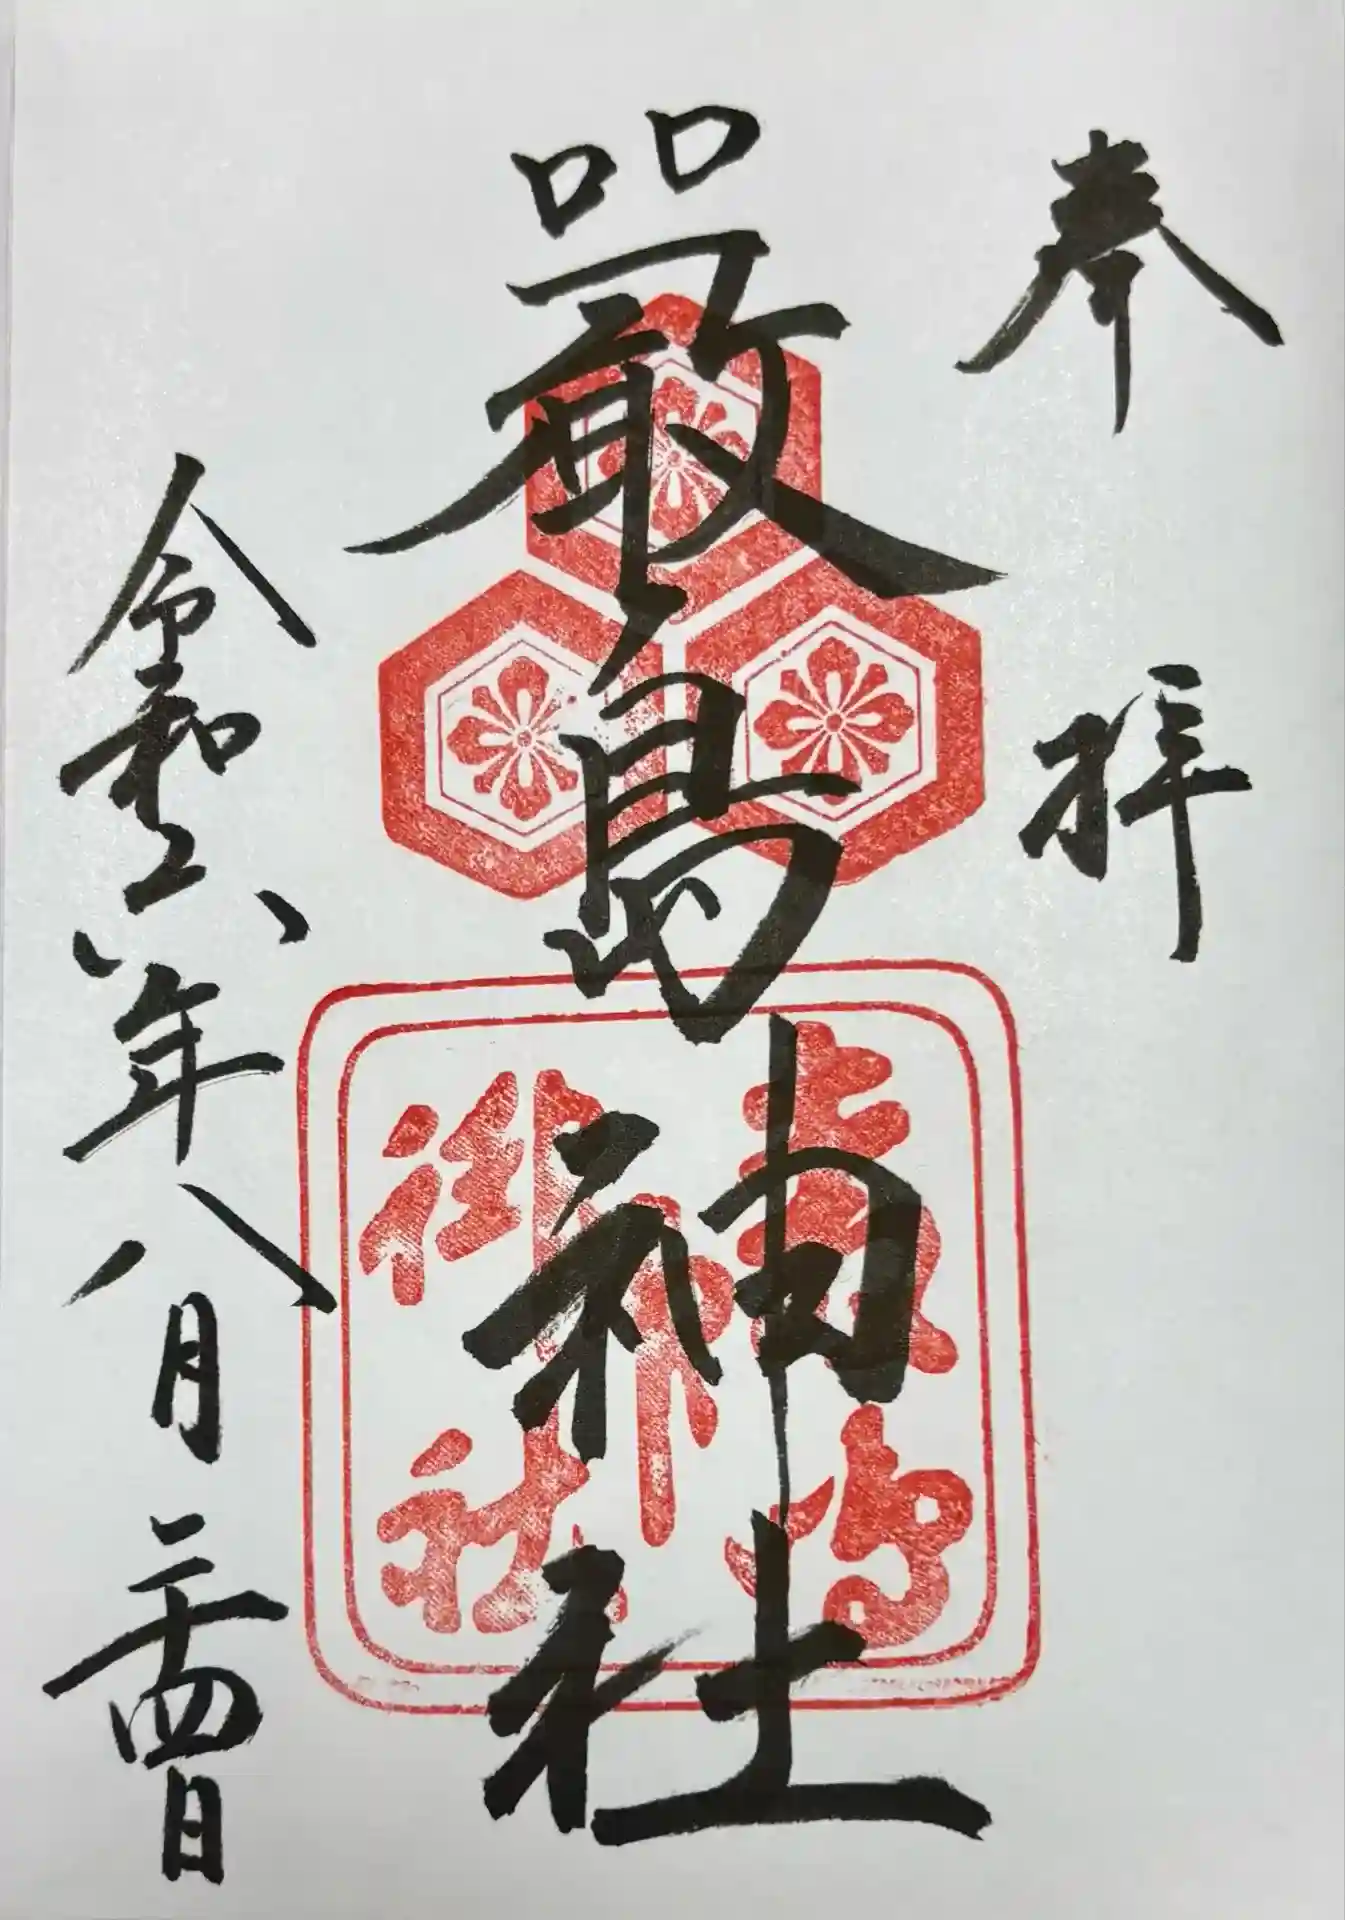 奉拝
嚴島神社
嚴島
神社
令和六年八月二十四日